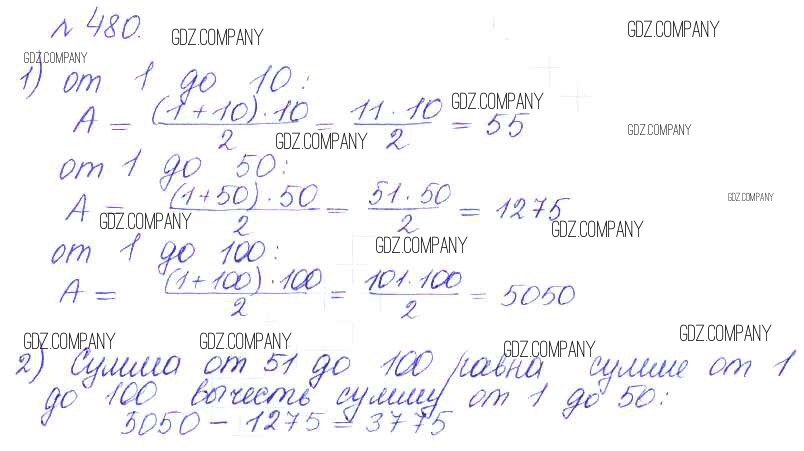 № 480. GDZ.COMPANY GDZ.COMPANY
GDZ.COMPANY
1) от 1 до 10:
A = (1+10)·10/2 = 11·10/2 = 55 GDZ.COMPANY
GDZ.COMPANY GDZ.COMPANY
от 1 до 50:
A = (1+50)·50/2 = 51·50/2 = 1275 GDZ.COMPANY
GDZ.COMPANY GDZ.COMPANY
от 1 до 100: GDZ.COMPANY
A = (1+100)·100/2 = 101·100/2 = 5050
GDZ.COMPANY GDZ.COMPANY GDZ.COMPANY GDZ.COMPANY
2) Сумма от 51 до 100 равна сумме от 1
до 100 вычесть сумму от 1 до 50:
5050 - 1275 = 3775